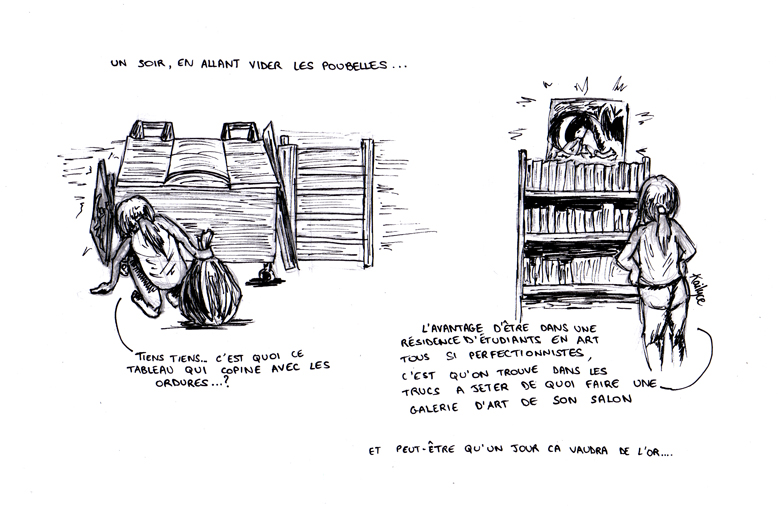 UN SOIR, EN ALLANT VIDER LES POUBELLES...
TIENS TIENS... C'EST QUOI CE
TABLEAU QUI COPINE AVEC LES
ORDURES...?
L'AVANTAGE D'ÊTRE DANS UNE
RÉSIDENCE D'ÉTUDIANTS EN ART
TOUS SI PERFECTIONNISTES,
C'EST QU'ON TROUVE DANS LES
TRUCS A JETER DE QUOI FAIRE UNE
GALERIE D'ART DE SON SALON
ET PEUT-ÊTRE QU'UN JOUR CA VAUDRA DE L'OR....